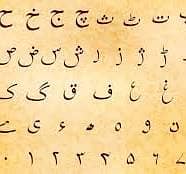 ت ٹ ث چ ج خ ح
ڑ ژ ز ر ش س ض ص
غ ع ف ق گ ک
ن و ہ ء ی ے
۰ ۱ ۲ ۳ ۵ ۶ ۷